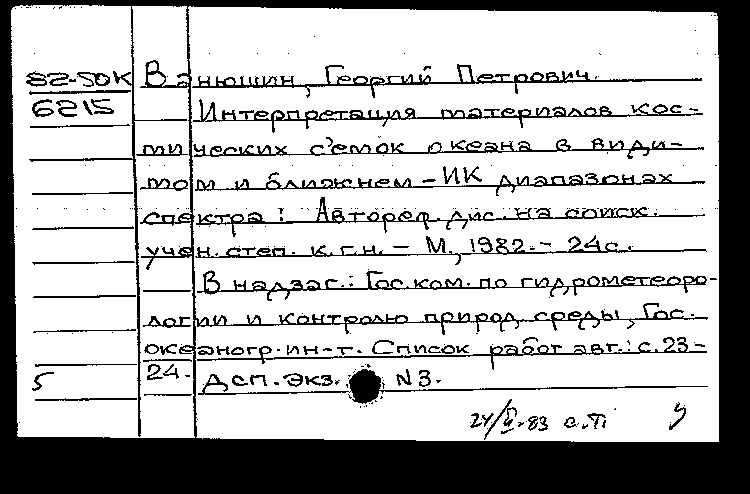 82-50К Ванюшин, Георгий Петрович.
6215 Интерпретация материалов кос-
мических с'емок океана в види-
мом и ближнем – ИК диапазонах
спектра: Автореф. дис. на соиск.
учен. степ. к.г.н. – М., 1982. – 24с.
В надзаг.: Гос. ком. по гидрометеоро-
логии и контролю природ. среды, Гос.
океаногр. ин-т. Список работ авт.: с. 23-
24. Дсп. Экз. N 3.
5